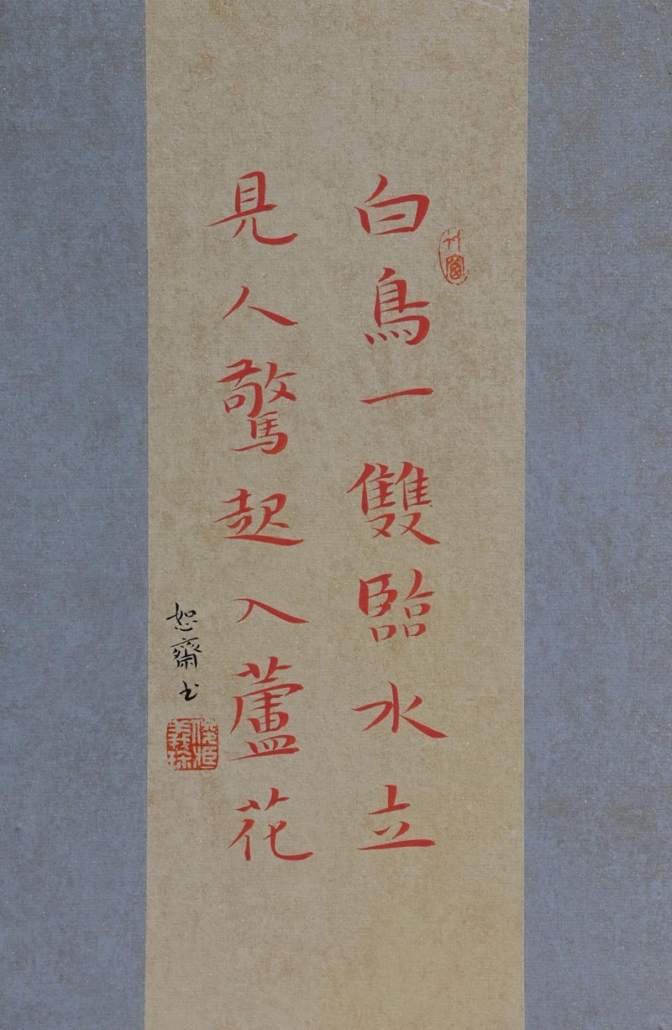 白鳥一雙臨水立
見人驚起入蘆花
恕齋书